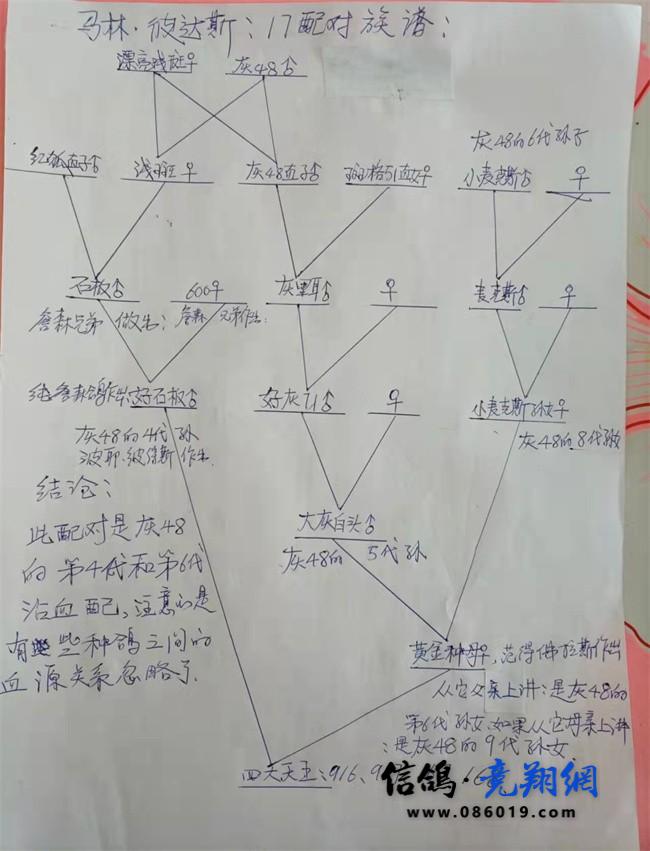 马林·彼达斯：17配对族谱：
漂亮浅斑♀ 灰48♂
灰48的6代孙子
红狐直子♂ 浅斑♀ 灰48直子♂ 51直女♀ 小麦克斯♂ ♀
石板♂ 600♀ 灰里耳♂ ♀ 麦克斯♂ ♀
詹森兄弟 做出； 詹森 兄弟作出
好石板♂ 好灰71♂ ♀ 小麦克斯孙女♀
灰48的4代孙 灰48的8代孙女
作出
结论：
大灰白头♂
此配对是灰48
灰48的 5代孙
的第4代和第6代
沿血配，注意的是
有些种鸽之间的
血源关系忽略了
黄金种母♀，范得佛拉斯作出
从它父亲上讲：是灰48的
第6代孙女，如果从它母亲上讲
：是灰48的9代孙女
四大天王：916、
信鸽·竞翔網
www.086019.com